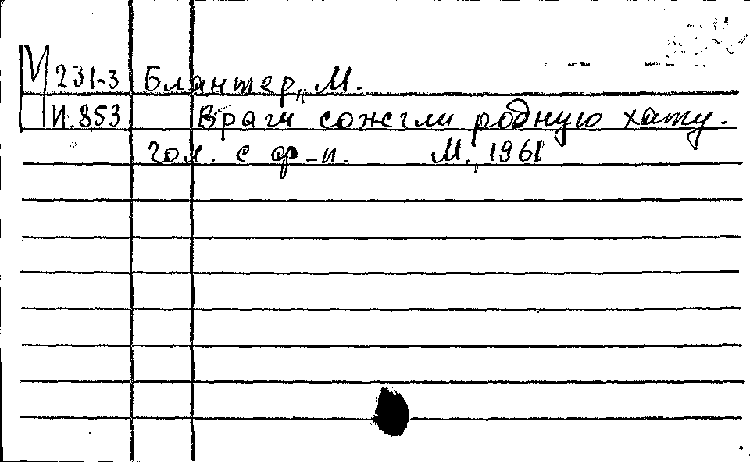 М 231-3 Блантер, М.
И. 853 Враги сожгли родную хату.
Гол. с ф-п. М., 1961